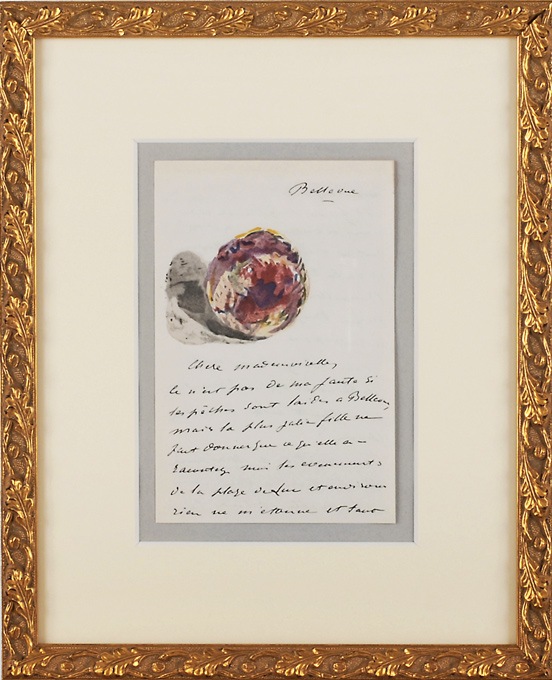 Bellevue
Chere mademoiselle,
ce n'est pas de ma faute si
les pêches sont laides a Bellevue
mais la plus jolie fille ne
peut donner que ce qu'elle a –
racontez moi les evenements
de la plage de Luc et environs
rien ne m'etonne et tout